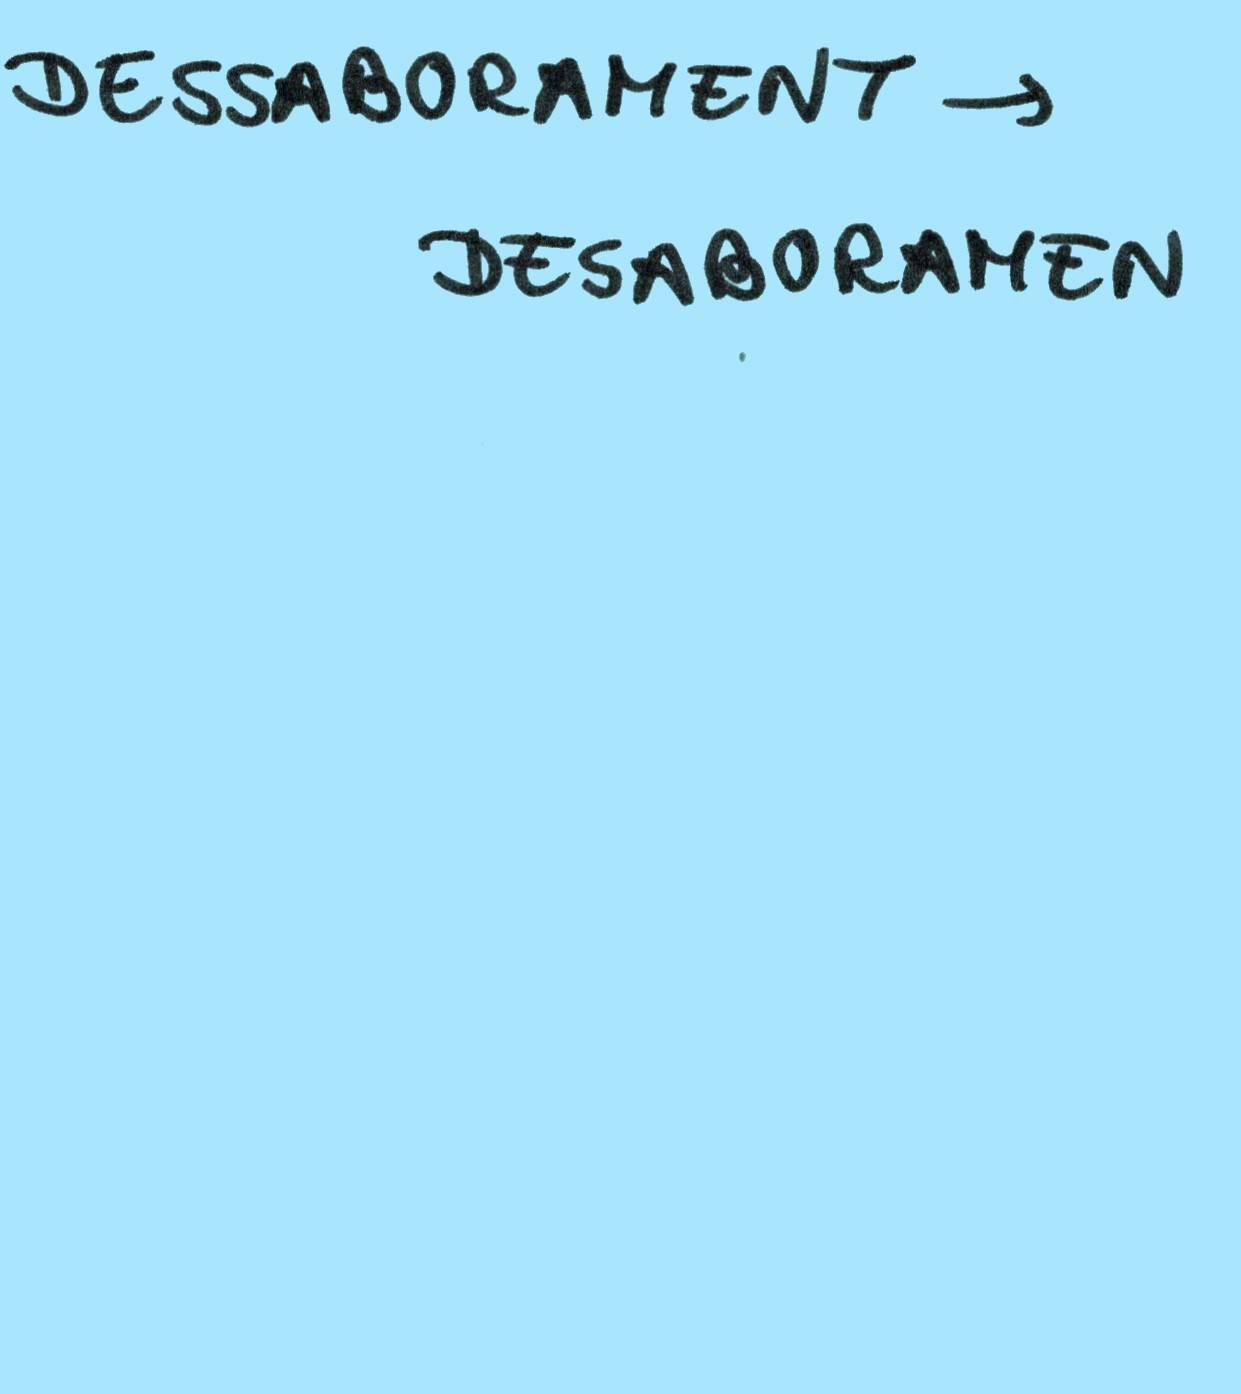 DESSABORAMENT →
DESABORAMEN